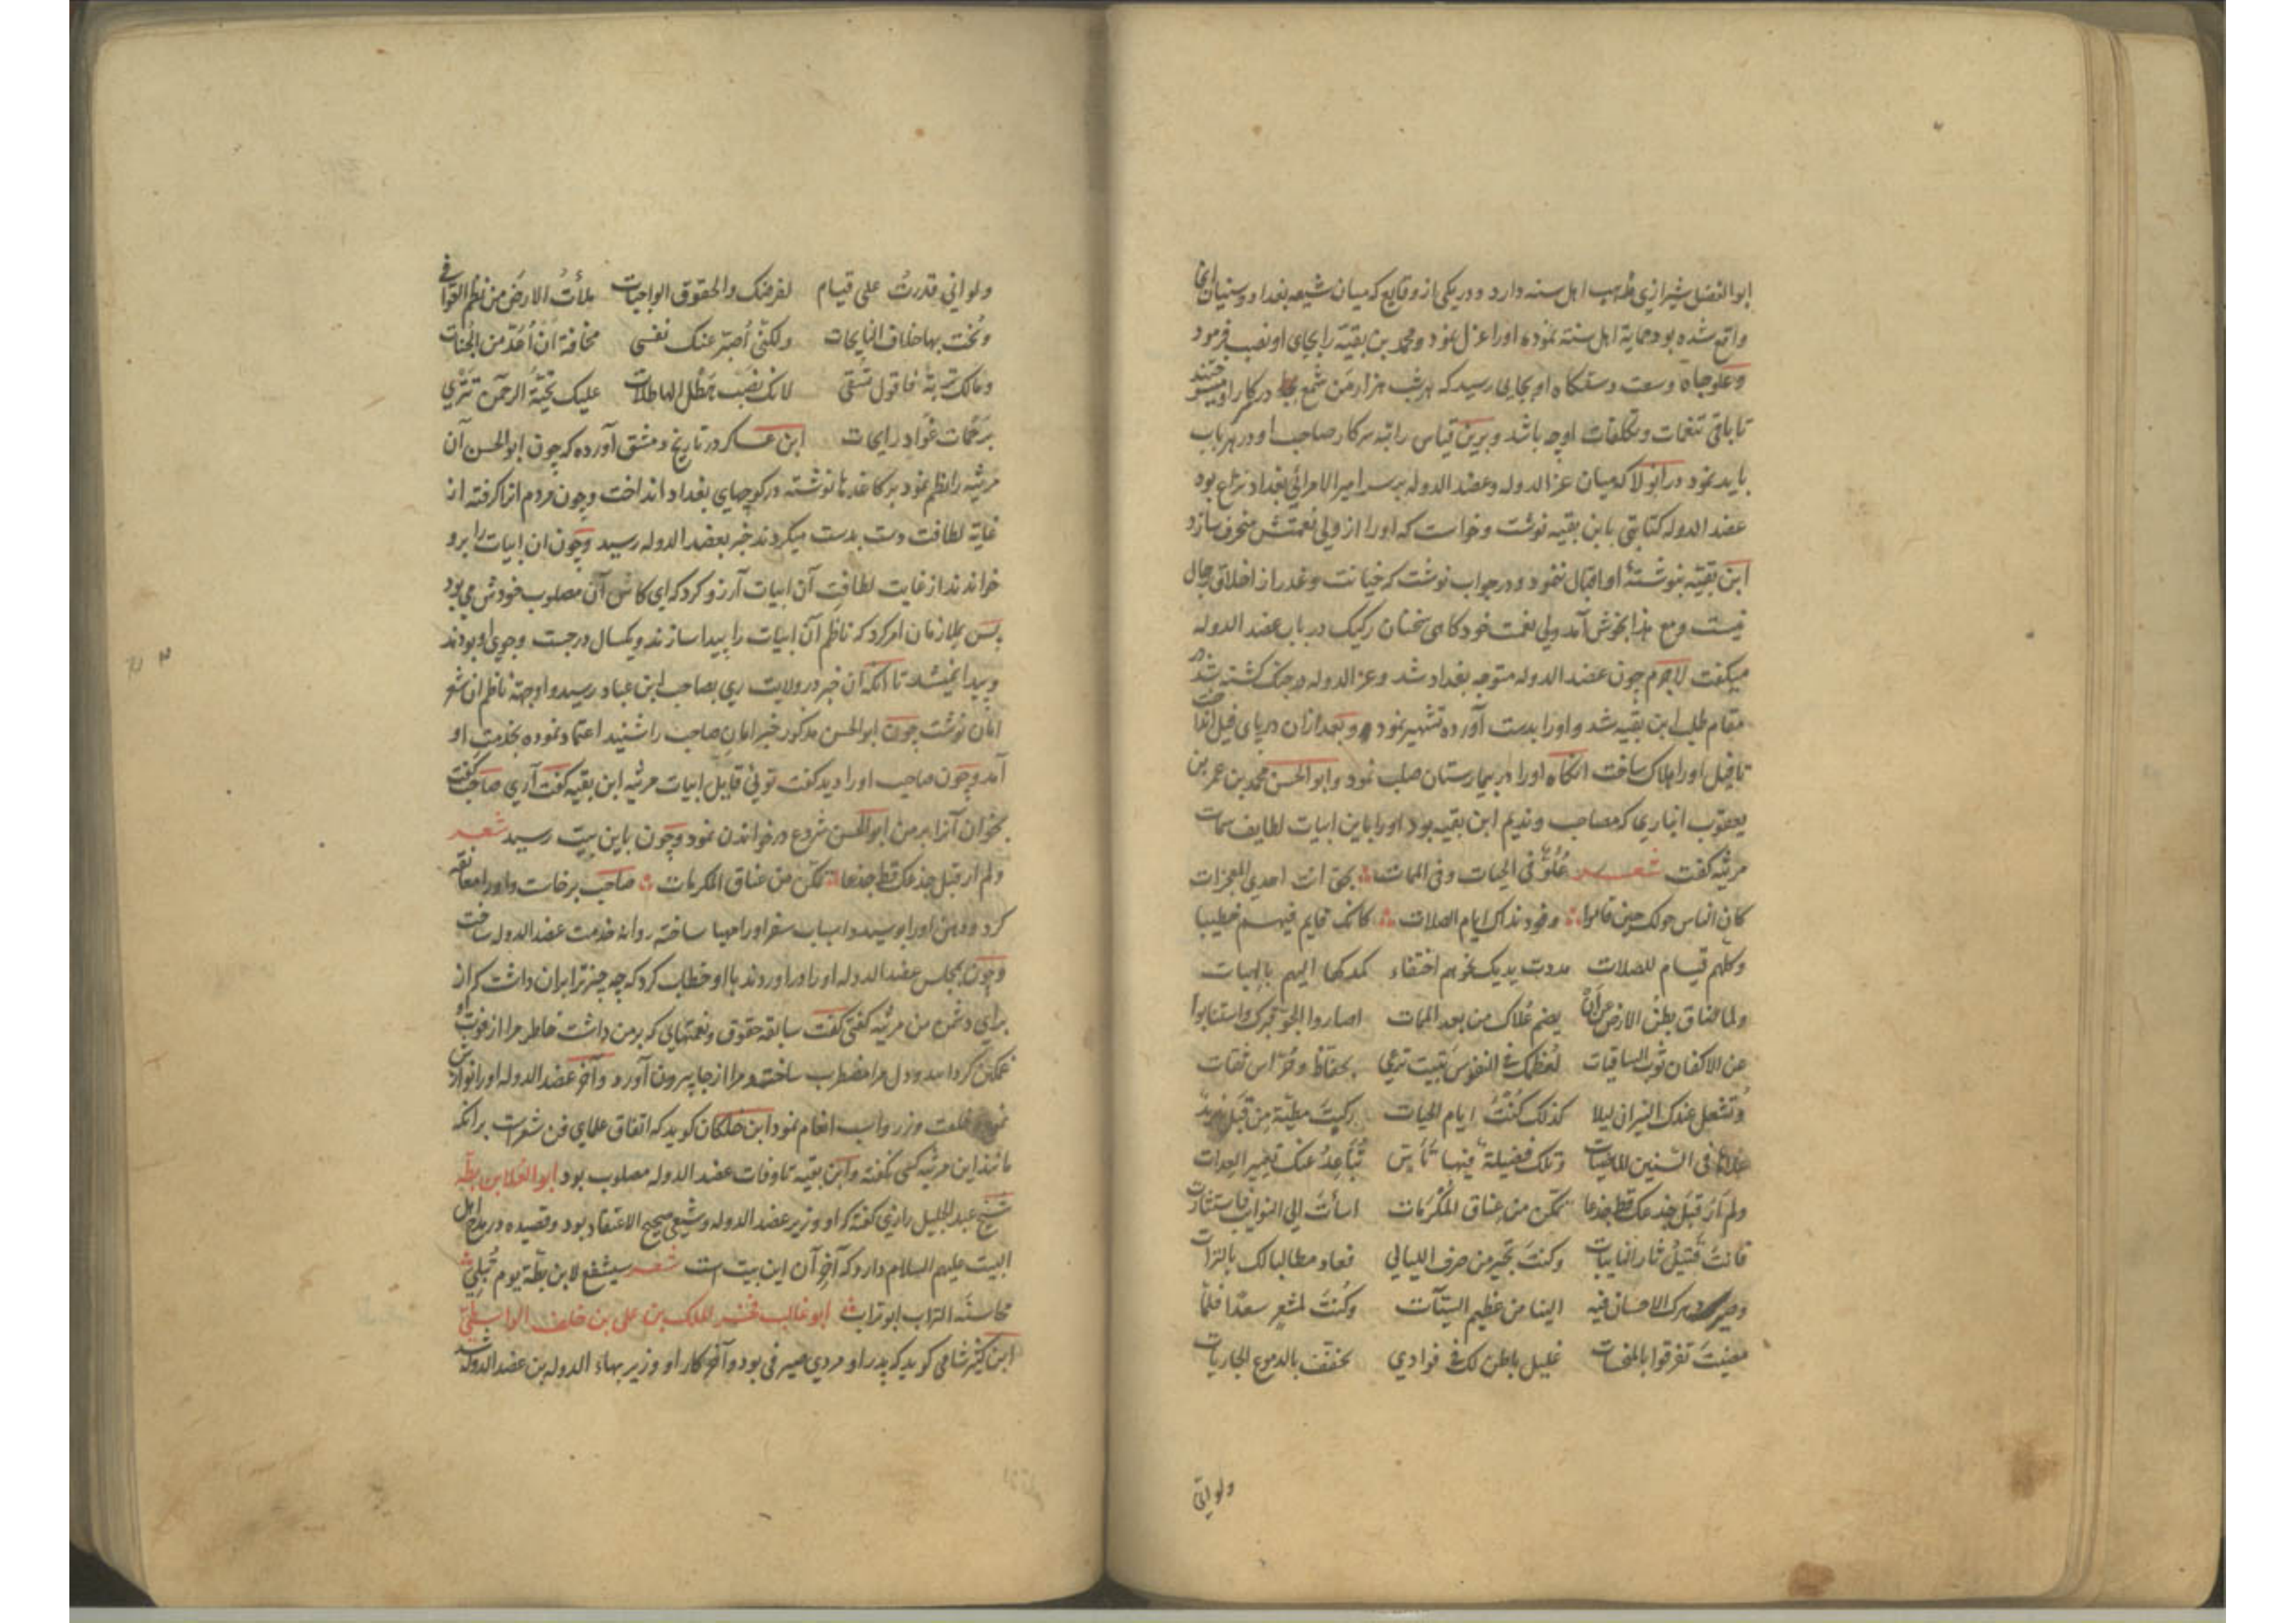 ابوالفضل شیرازی مذهب اهل سنه دارد و در یکی از وقایع که میان شیعه بغداد و سنیان آنجا
واقع شده بود حمایة اهل سنته نموده اورا عزل نمود و محمد بن بقیّه را بجای او نصب فرمود
و علو جاه و سعت دستکاه او بجایی رسید که هر شب هزار من شمع در کار او میسوختند
تا باقی تنعمات و تکلفات او چه باشد و برین قیاس راتبه سرکار صاحب او در هر باب
باید نمود در انولا که میان عزالدوله و عضدالدوله بر سر امیرالامرائی بغداد نزاع بود
عضدالدوله کتابتی بابن بقیه نوشت و خواست که اورا از ولی نعمتش منحرف سازد
ابن بقیّه بنوشتهٔ او اقبال ننمود و در جواب نوشت که خیانت و غدر از اخلاق رجال
نیست و مع هذا بخوش آمد ولی نعمت خود کاهی سخنان رکیک در باب عضدالدوله
میکفت لاجرم چون عضدالدوله متوجه بغداد شد و عزالدوله در جنک کشته شد در
مقام طلب ابن بقیه شد و اورا بدست آورده تشهیر نمود و بعد ازان در پای فیل انداخت
تا فیل اورا هلاک ساخت انکاه اورا در بیمارستان صلب نمود و ابوالحسن محمد بن عمر بن
یعقوب انباری که مصاحب و ندیم ابن بقیه بود اورا باین ابیات لطایف سمات
مرثیه کفت شعر عُلُوٌّ فی الحیات و فی الممات بحق انت احدی المعجزات
کان الناس حولک حین قاموا وفود نداک ایام الصلات کانک قایم فیهم خطیبا
وکلهم قیام للصلات مددت یدیک نحوهم احتفاء کمدکها الیهم بالهبات
ولما ضاق بطن الارض عن أن یضم عُلاک من بعد الممات اصاروا الجو قبرک واستنابوا
عن الاکفان ثوب السافیات لعظمک فی النفوس تبیت ترعی بحفاظ وحُرّاس ثقات
وتشعل عندک النیران لیلا کذلک کُنْتَ ایام الحیات رکبتَ مطیّة مِن قَبل زید
علاها فی السنین الماضیات وتلک فضیلة فیها تأسّ تُباعِدُ عنک تعییر العدات
ولم اَر قبل جذعک قط جذعا تمکّن من عناق المکرمات اسأتَ الی النوایب فاستثارت
فانت قتیل ثار النایبات وکنت تجیر من صرف اللیالی فعاد مطالبا لک بالترات
وصیر دهرک الاحسان فیه الینا من عظیم السیّآت وکُنتَ لمشعر سعدًا فلمّا
مضیتَ تفرقوا بالمنحسات غلیل باطن لک فی فوادی یخفف بالدموع الجاریات
ولو انی
ولو انی قدرتُ علی قیام لفرضک والحقوق الواجبات ملأتُ الارض من نظم القوافی
ونُحت بها خلاف النایحات ولکنّی أُصبّر عنک نفسی مخافة أن أُعَدّ من الجُنات
ومالک تربة فاقول تسقی لانک نصب هطل الهاطلات علیک تحیّة الرحمن تَتری
برحمات غواد رایحات ابن عساکر در تاریخ دمشق آورده که چون ابوالحسن آن
مرثیه را نظم نمود بر کاغذها نوشته در کوچهای بغداد انداخت و چون مردم انرا کرفته از
غایة لطافت دست بدست میکردند خبر بعضدالدوله رسید و چون ان ابیات را برو
خواندند از غایت لطافت آن ابیات آرزو کرد که ای کاش آن مصلوب خودش می بود
پس بملازمان امر کرد که ناظم آن ابیات را پیدا سازند و یکسال در جست و جوی او بودند
و پیدا نمیشد تا انکه ان خبر در ولایت ری بصاحب ابن عباد رسید و او جهته ناظم ان شعر
امان نوشت چون ابوالحسن مذکور خبر امان صاحب را شنید اعتماد نموده بخدمت او
آمد و چون صاحب اورا دید کفت توئی قایل ابیات مرثیه ابن بقیه کفت آری صاحب کفت
بخوان آنرا بر من ابوالحسن شروع در خواندن نمود و چون باین بیت رسید شعر
ولم ار قبل جذعک قط جذعا تمکّن من عناق المکرمات صاحب برخاست و اورا معانقه
کرد و دهن اورا بوسید و اسباب سفر اورا مهیا ساخته روانه خدمت عضدالدوله ساخت
و چون بمجلس عضدالدوله اورا در اوردند با او خطاب کرد که چه چیز ترا بران داشت که از
برای دشمن من مرثیه کفتی کفت سابقه حقوق و نعمتهایی که بر من داشت خاطر مرا از فوت او
غمکین کردانید و دل مرا مضطرب ساخت و مرا از جا بیرون آورد و آخر عضدالدوله اورا نوازش
نموده خلعت و زر و اسب انعام نمود ابن خلکان کوید که اتفاق علمای فن شعر است برانکه
مانند این مرثیه کسی نکفته و ابن بقیه تا وفات عضدالدوله مصلوب بود ابوالعلا بن بطّه
شیخ عبدالجلیل رازی کفته که او وزیر عضدالدوله و شیعی صحیح الاعتقاد بود و قصیده در مدح اهل
البیت علیهم السلام دارد که آخر آن این بیت است شعر سیشفع لابن بطّة یوم تُبلی
محاسنه التراب ابوتراب ابوغالب فخر الملک بن علی بن خلف الواسطی
ابن کثیر شامی کوید که پدر او مردی صیرفی بود و آخر کار او وزیر بهاء الدوله بن عضدالدوله شد